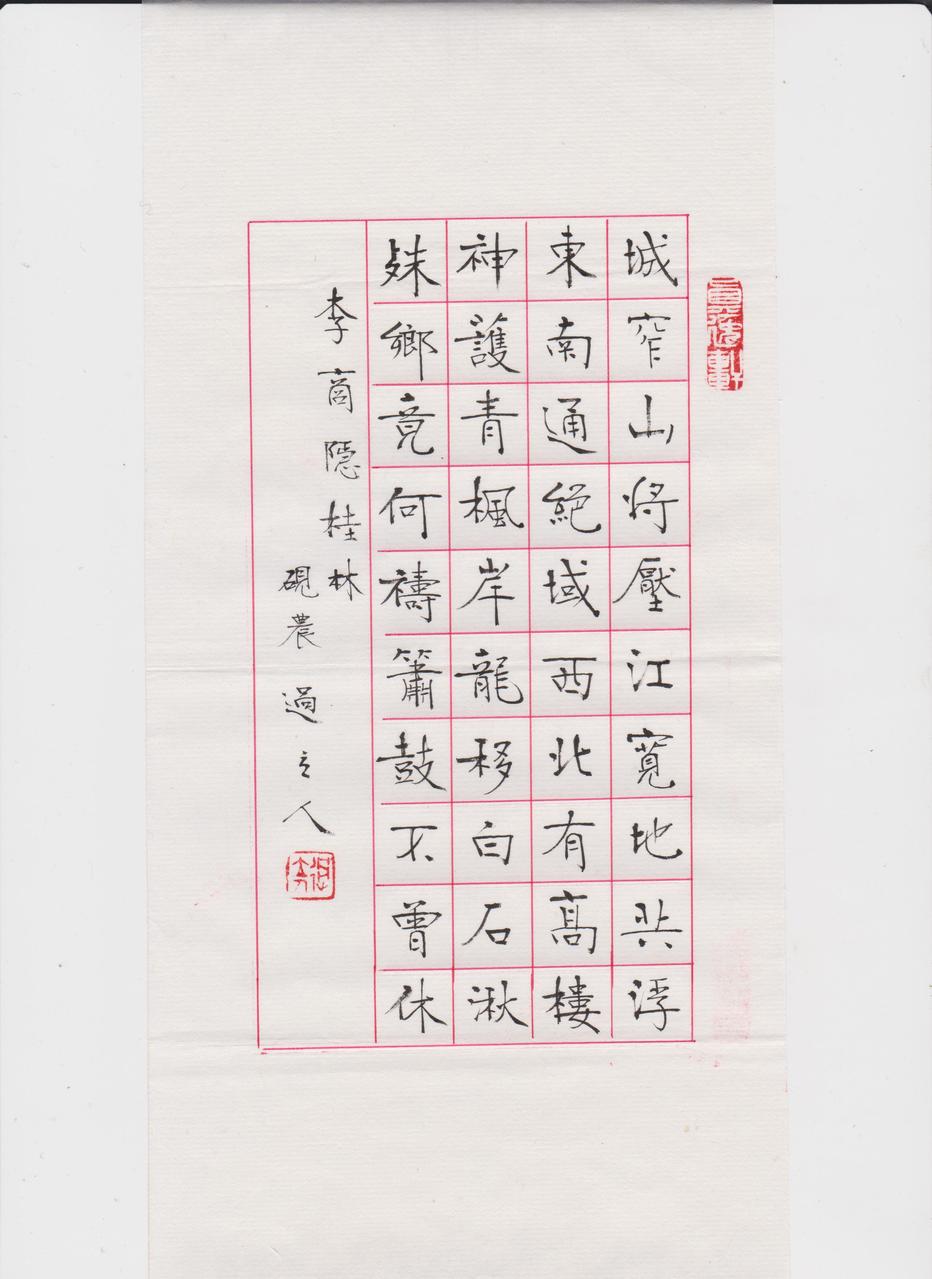 城窄山將壓江寬地共浮
東南通絕域西北有高樓
神護青楓岸龍移白石湫
殊鄉竟何禱簫鼓不曾休
李商隱桂林
硯農過立人